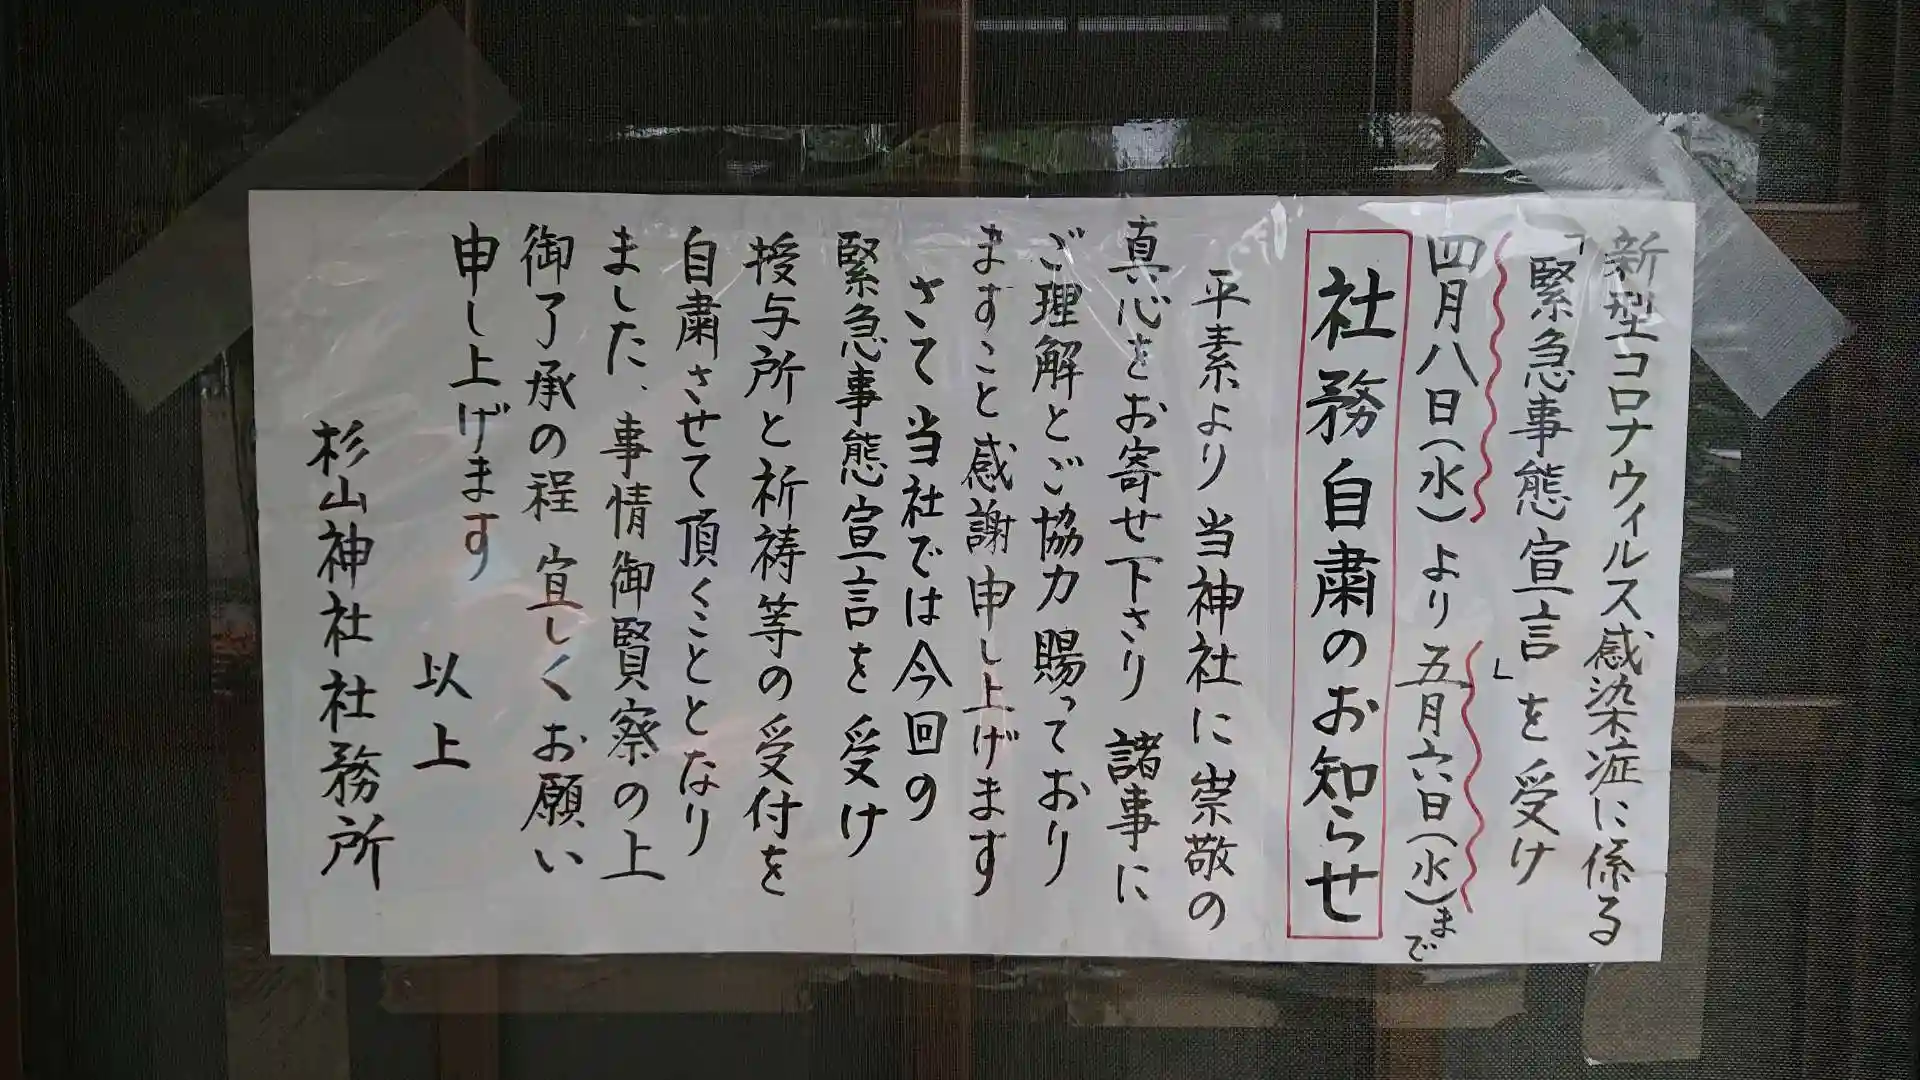 新型コロナウィルス感染症に係る
「緊急事態宣言」を受け
四月八日(水)より五月六日(水)まで
社務自粛のお知らせ
平素より当神社に崇敬の
真心をお寄せ下さり諸事に
ご理解とご協力賜っており
ますこと感謝申し上げます
さて当社では今回の
緊急事態宣言を受け
授与所と祈祷等の受付を
自粛させて頂くこととなり
ました、事情御賢察の上
御了承の程宜しくお願い
申し上げます
以上
杉山神社社務所